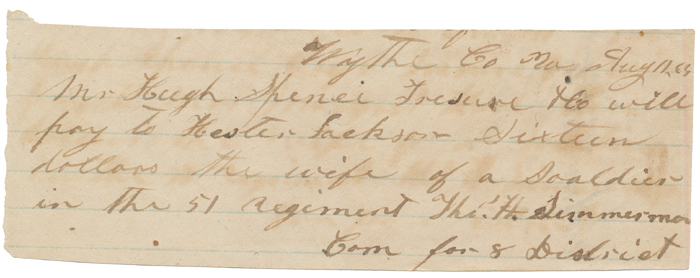 Wythe Co Va Aug 12, 64
Mr Hugh Spence Tresure &Co will
pay to Hester Jackson Sixteen
dollars the wife of a Soaldier
in the 51 regiment Tho. H. Simmerman
Com for 8 District